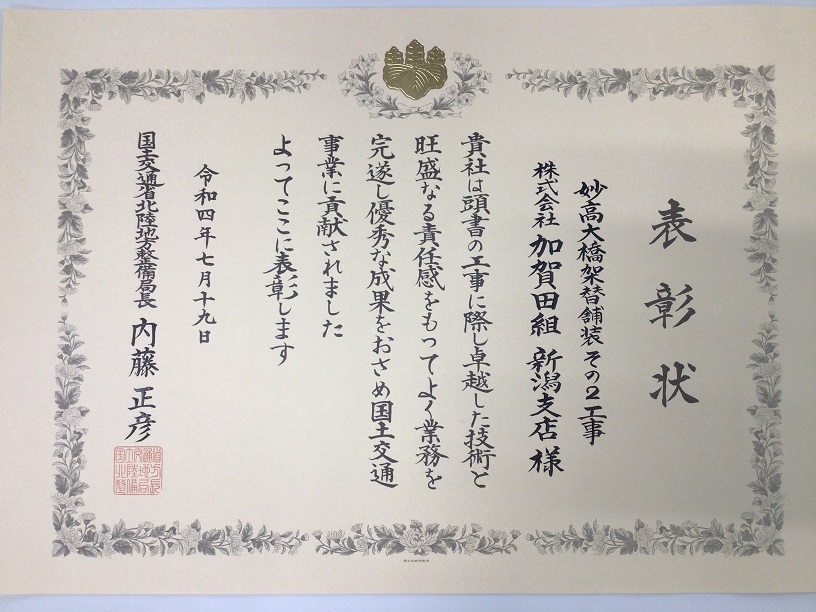 表彰状
妙高大橋架替舗装その2工事
株式会社 加賀田組 新潟支店 様
貴社は頭書の工事に際し卓越した技術と
旺盛なる責任感をもってよく業務を
完遂し優秀な成果をおさめ国土交通
事業に貢献されました
よってここに表彰します
令和四年七月十九日
国土交通省北陸地方整備局長 内藤 正彦